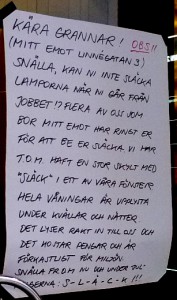 KÄRA GRANNAR! OBS!!
(MITT EMOT LINNÉGATAN 3)
SNÄLLA, KAN NI INTE SLÄCKA
LAMPORNA NÄR NI GÅR FRÅN
JOBBET!? FLERA AV OSS SOM
BOR MITT EMOT HAR RINGT ER
FÖR ATT BE ER SLÄCKA. VI HAR
T.O.M. HAFT EN STOR SKYLT MED
"SLÄCK" I ETT AV VÅRA FÖNSTER
HELA VÅNINGAR ÄR UPPLYSTA
UNDER KVÄLLAR OCH NÄTTER
DET LYSER RAKT IN TILL OSS OCH
DET KOSTAR PENGAR OCH ÄR
FÖRKASTLIGT FÖR MILJÖN.
SNÄLLA FR.O.M NU OCH UNDER JUL-
S-L-Ä-C-K!!!